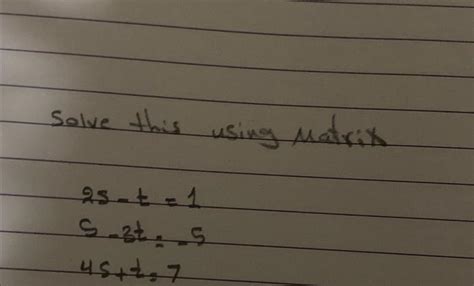 Solve this using Matrix
2s - t = 1
s - 3t = -5
4s + t = 7